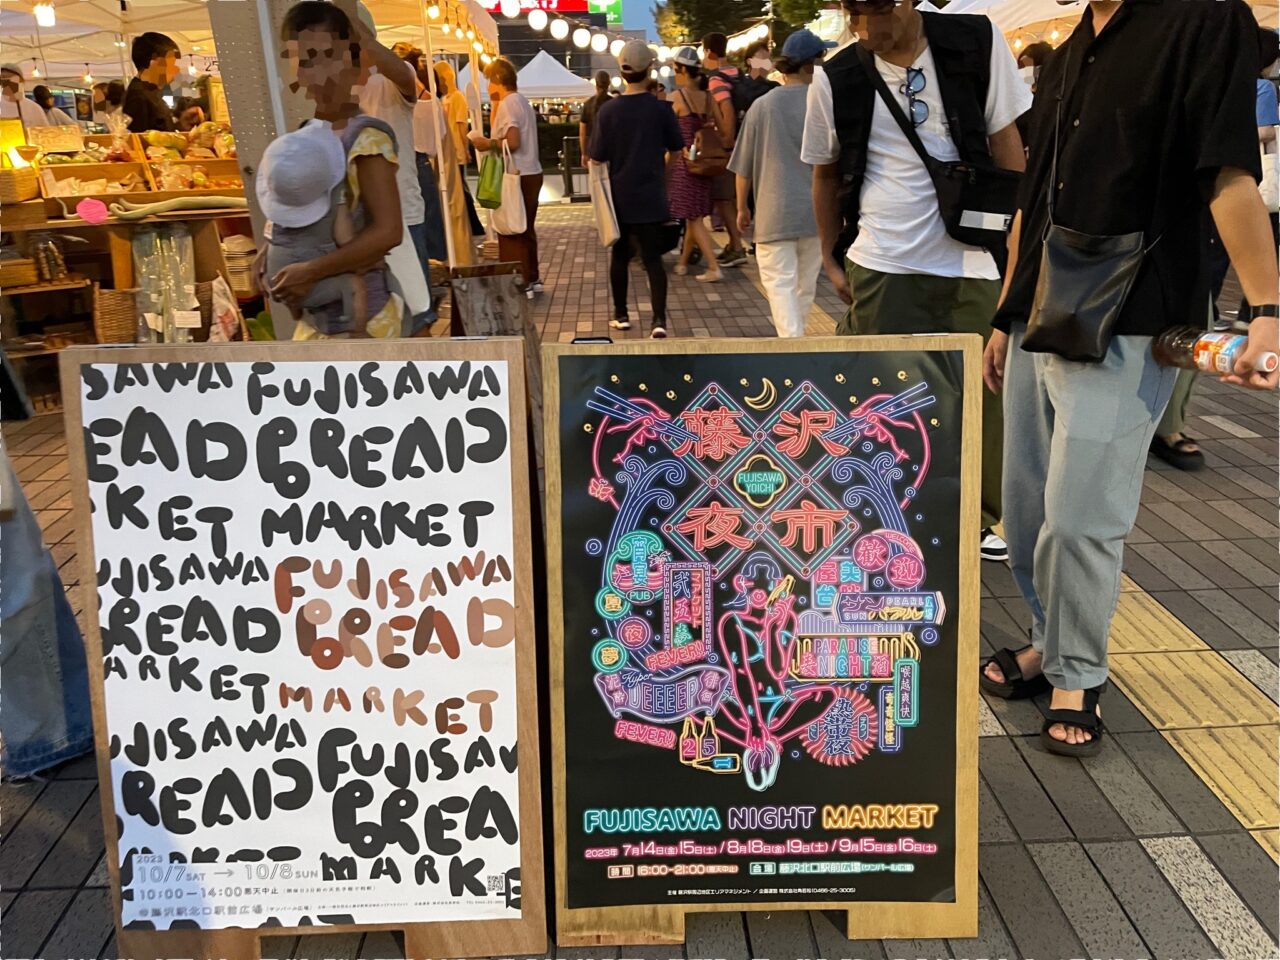 SAWA FUJISAWA
EAD BREAD
KET MARKET
UJISAWA FUJISAWA
BREAD BREAD
ARKET MARKET
UJISAWA FUJISAW
READ BREA
MARK
2023
10/7 SAT → 10/8 SUN
10:00-14:00 悪天中止
@藤沢駅北口駅前広場 (サンパール広場)
藤沢
FUJISAWA
YOICHI
夜市
WELCOME
歓迎
PUB
屋台
弐五
マーケット
PEARL
サンパール
SUN
広場
夜
夢
FEVER!
PARADISE
NIGHT
喉越爽快
Hyper
JEEEEP
奇奇怪怪
熱帯夜
FEVER!
25
FUJISAWA NIGHT MARKET
2023年 7月14日(金)15日(土)/8月18日(金)19日(土)/9月15日(金)16日(土)
時間 16:00-21:00(悪天中止) 会場 藤沢北口駅前広場(サンパール広場)
主催 藤沢駅周辺地区エリアマネジメント / 企画運営 株式会社角若松(0466-25-3005)